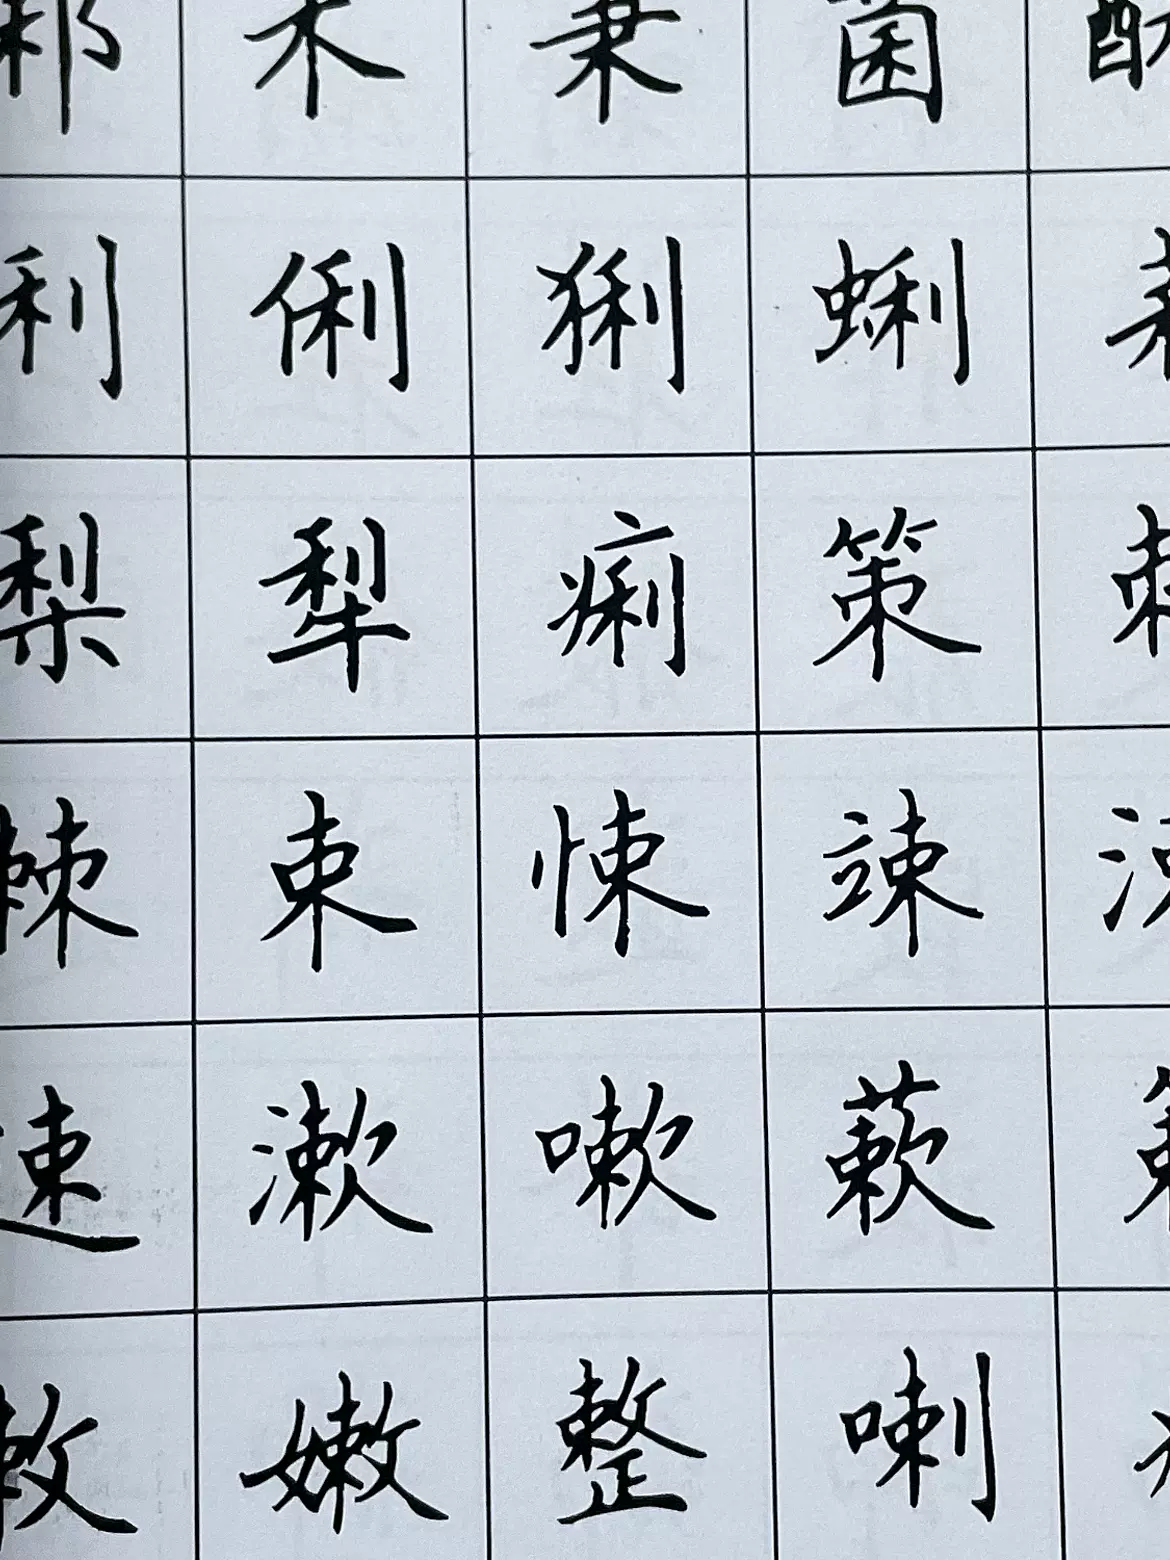 秉 菌
利 俐 猁 蜊
梨 犁 痢 策
棘 束 悚 竦
速 漱 嗽 蔌
敕 嫩 整 喇